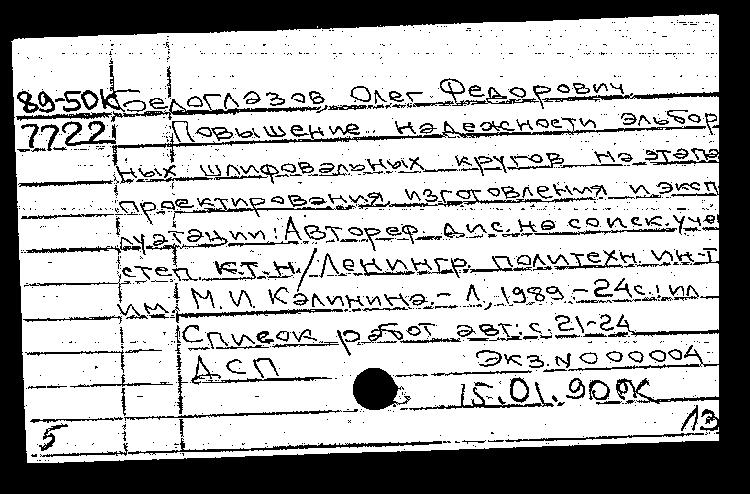 89-50К Белоглазов, Олег Федорович
7722 Повышение надежности эльбор
ных шлифовальных кругов на этапе
проектирования, изготовления и эксп
луатации: Автореф. дис. на соиск. учен
степ. к.т.н. / Ленингр. политехн. ин-т
им. М.И. Калинина. - Л, 1989. - 24с.: ил
Список работ авт.: с. 21-24
ДСП Экз. N 000004
15.01.90
5 13